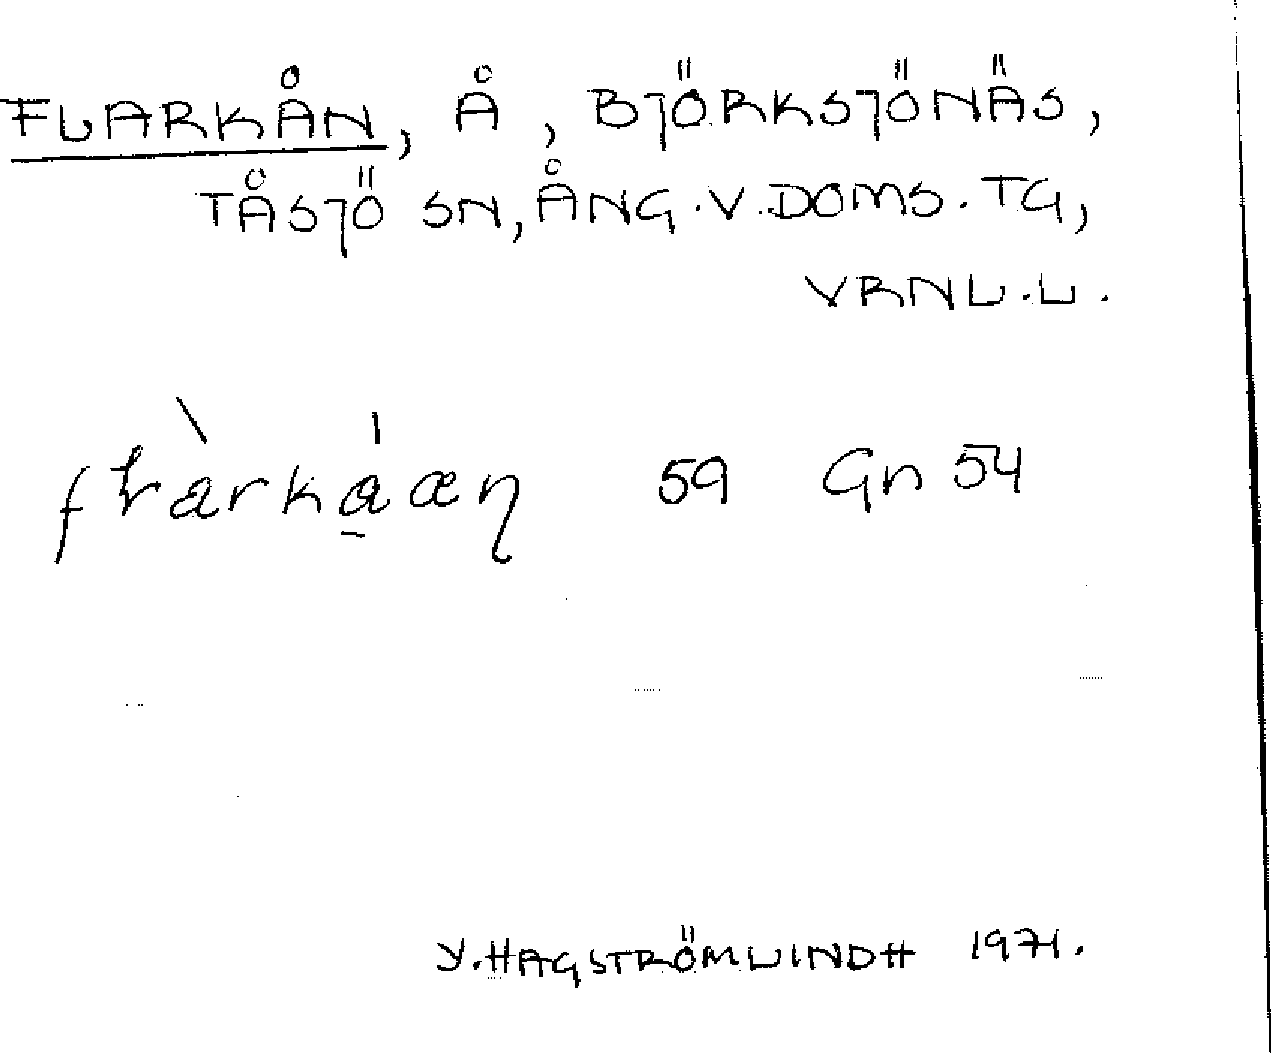 FLARKÅN, Å, BJÖRKSJÖNÄS,
TÅSJÖ SN, ÅNG. V. DOMS. TG,
VRNL. L.
59 Gn 54
Y. HAGSTRÖMLINDH 1971.